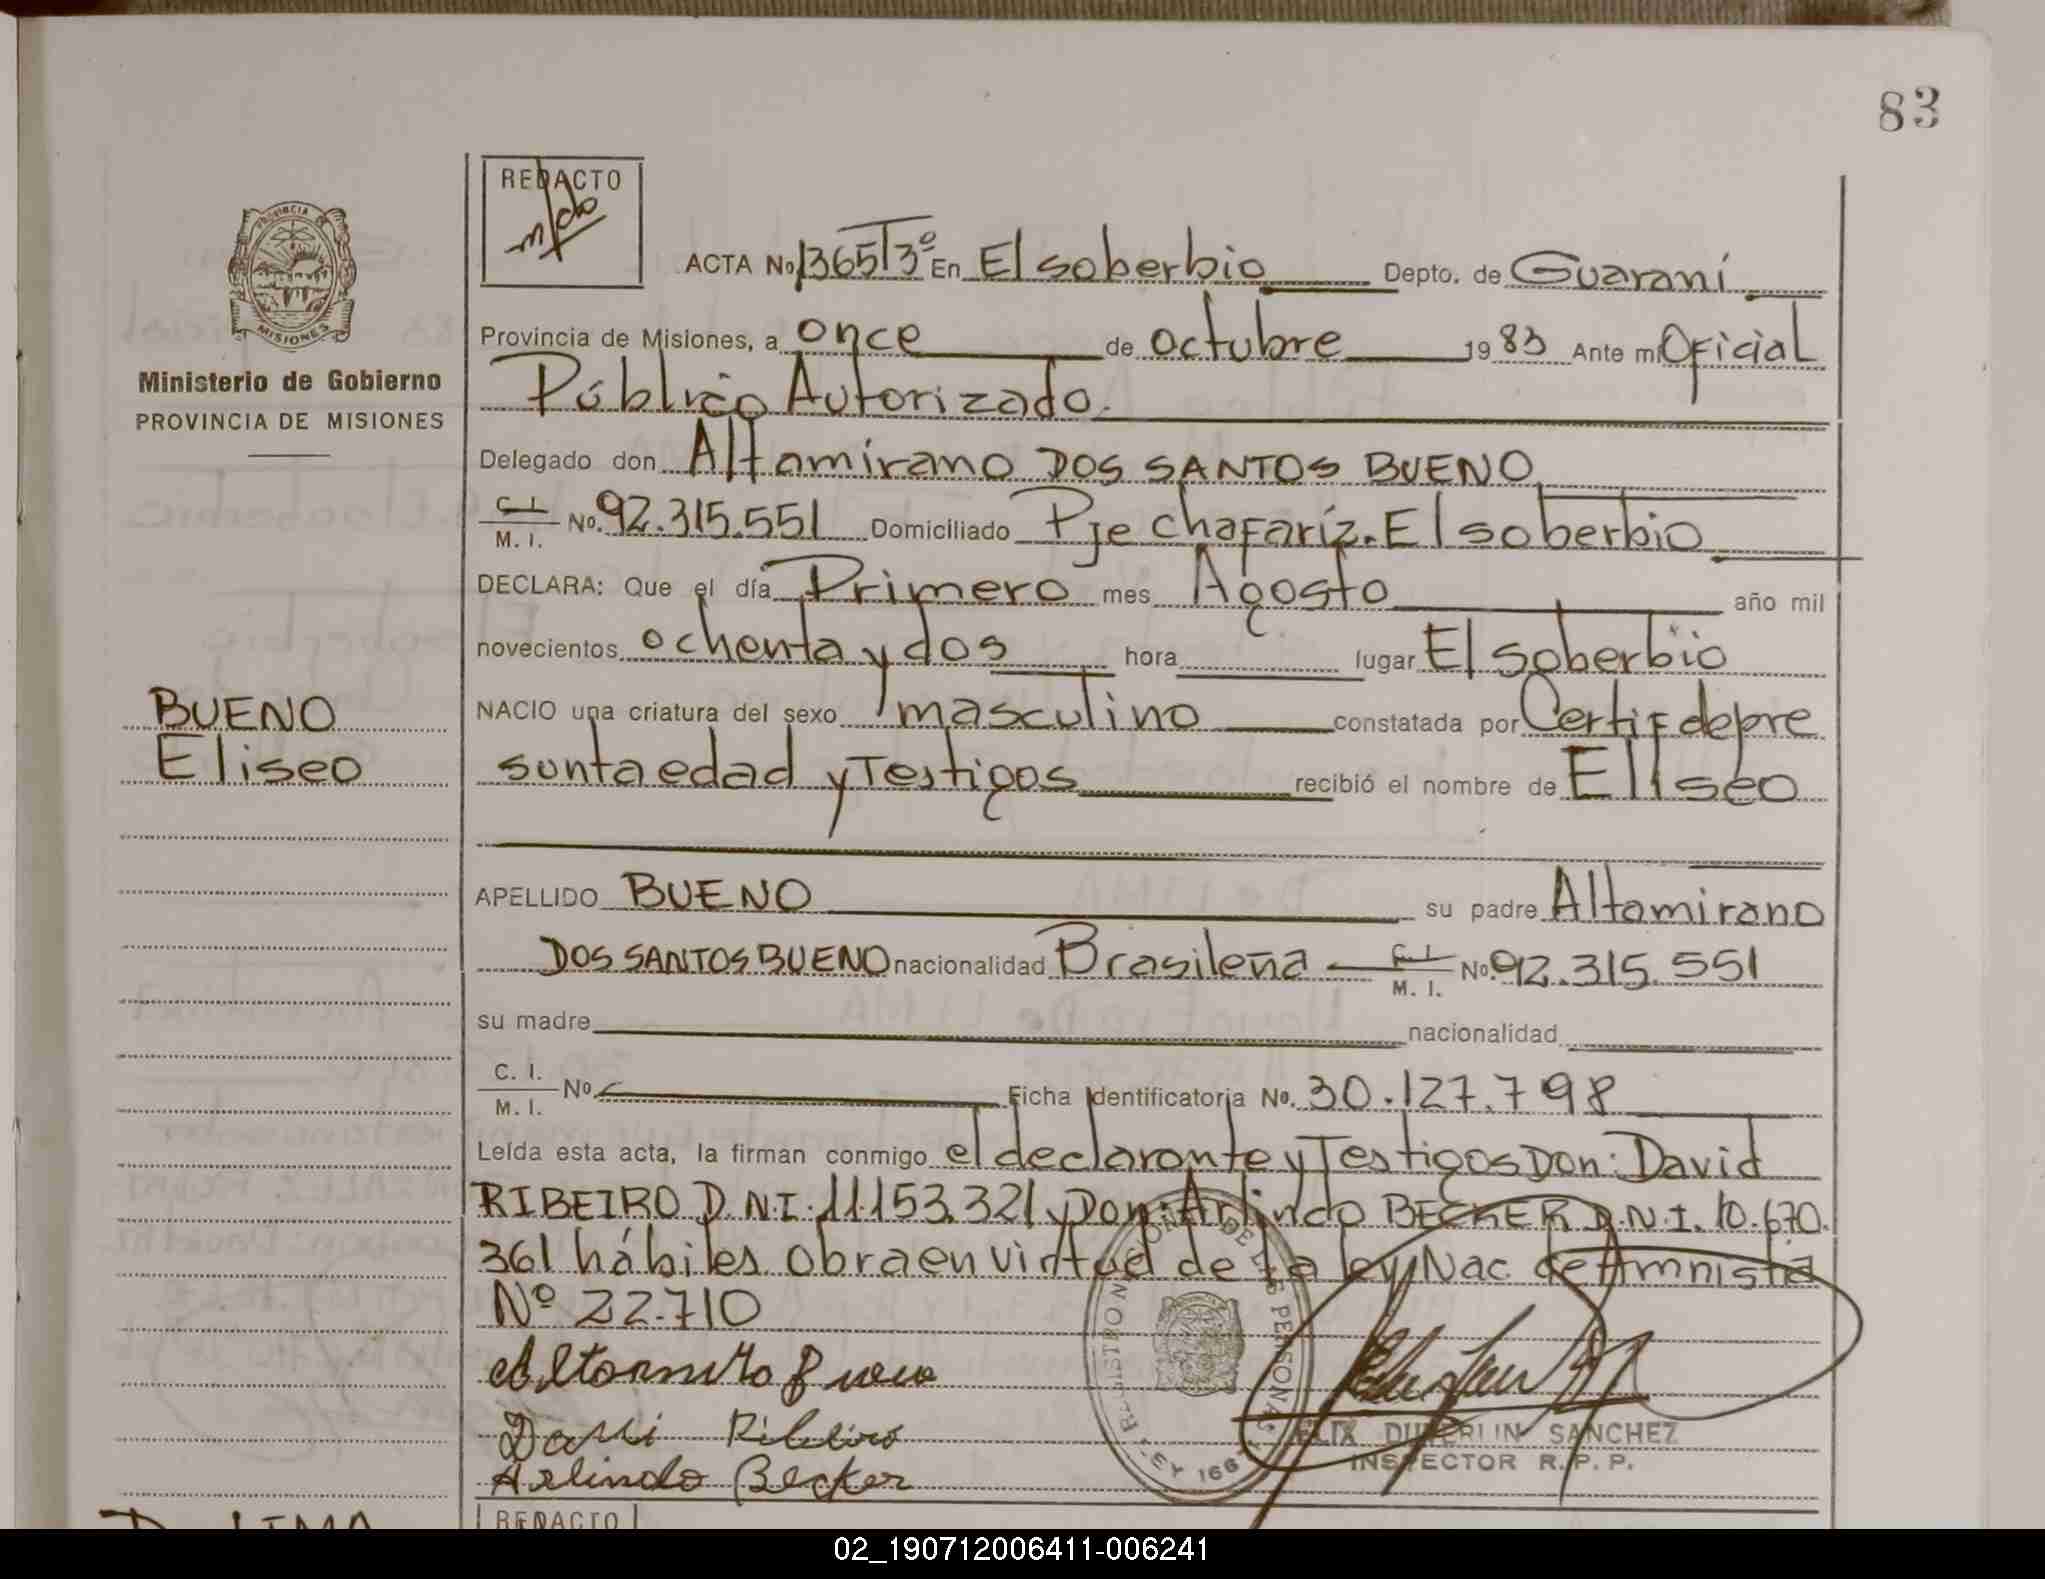 83
REDACTO
ACTA No 1365 T3º En El soberbio Depto. de Guaraní
Provincia de Misiones, a once de octubre 1983 Ante mi Oficial
Público Autorizado.
PROVINCIA DE
MISIONES
Ministerio de Gobierno
PROVINCIA DE MISIONES
Delegado don Altamirano DOS SANTOS BUENO
C I
M. I. No. 92.315.551 Domiciliado Pje chafaríz. El soberbio
DECLARA: Que el día Primero mes Agosto año mil
novecientos ochenta y dos hora lugar El soberbio
BUENO
Eliseo
NACIO una criatura del sexo masculino constatada por Certif de pre
sunta edad y Testigos recibió el nombre de Eliseo
APELLIDO BUENO su padre Altamirano
DOS SANTOS BUENO nacionalidad Brasileña C I
M. I. No. 92.315.551
su madre nacionalidad
C. I.
M. I. No. Ficha Identificatoria No. 30.127.798
Leída esta acta, la firman conmigo el declarante y Testigos Don: David
RIBEIRO D.N.I. 11.153.321 y Don: Arlindo BECKER D.N.I. 10.670.
361 hábiles obra en virtud de la ley Nac de Amnistia
Nº 22.710
Arlindo Becker
FELIX DUVERLIN SANCHEZ
INSPECTOR R. P. P.
REDACTO
De LIMA
02_190712006411-006241